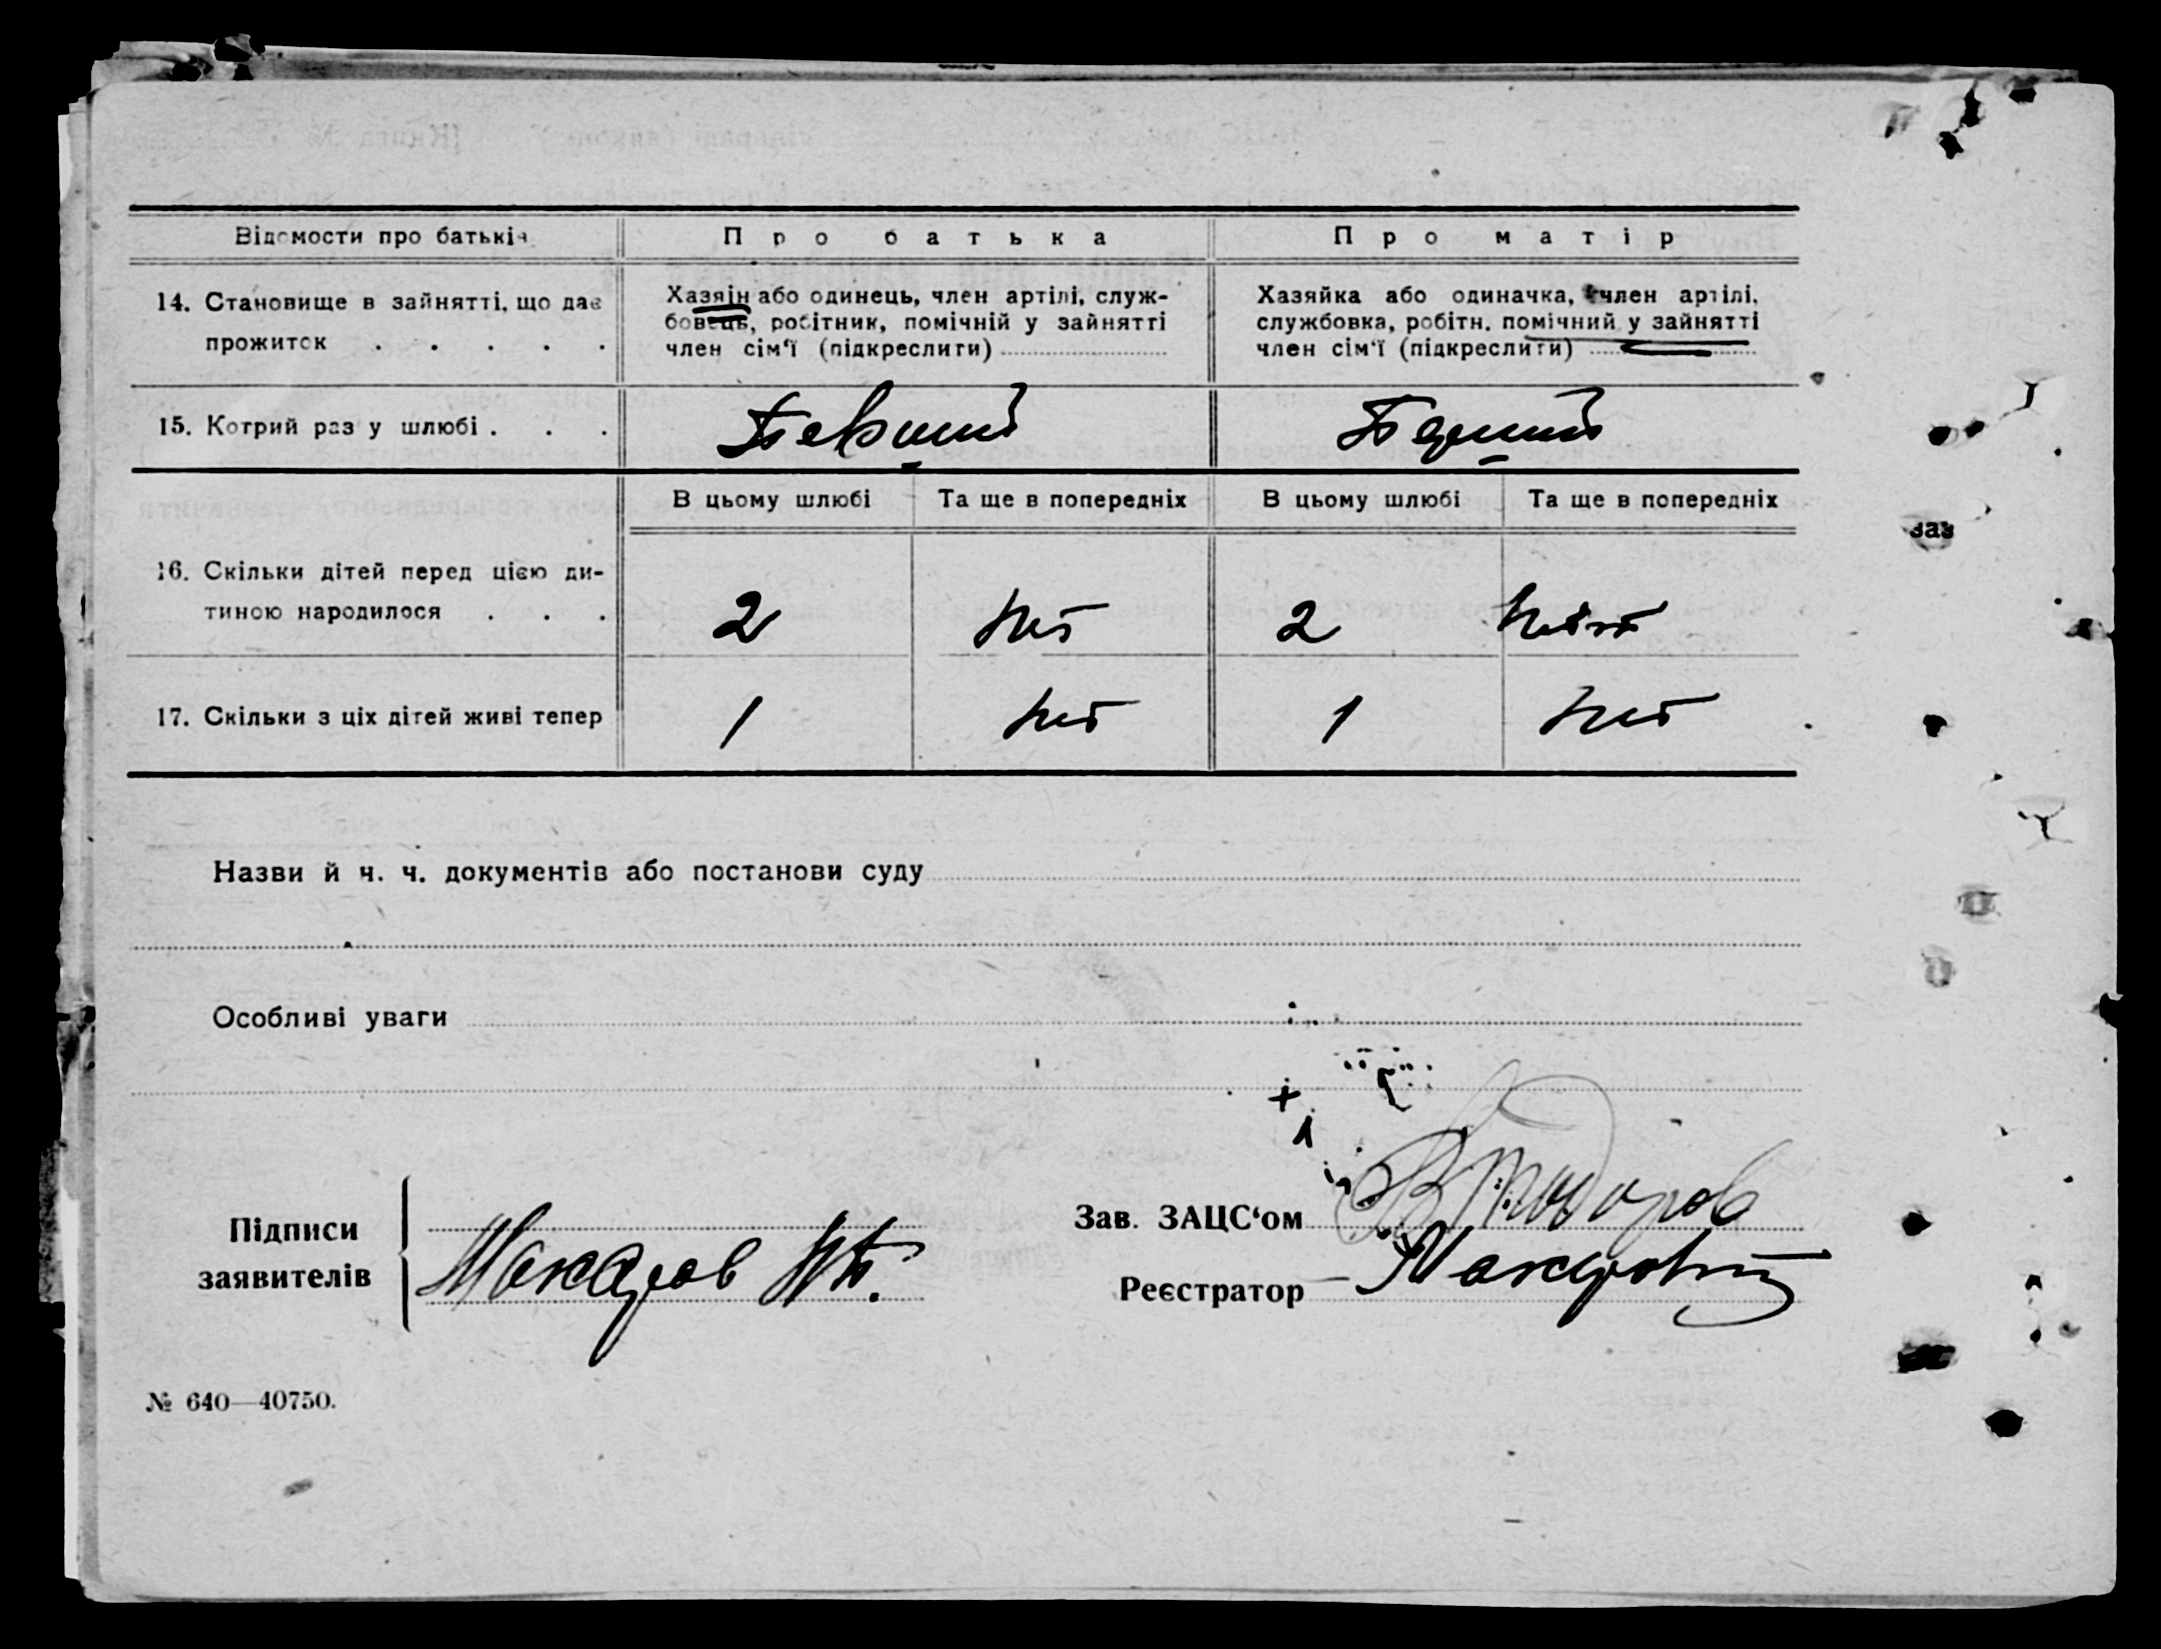 Відомости про батьків
Про батька
Про матір
14. Становище в зайнятті, що дає
прожиток . . . . .
Хазяїн або одинець, член артілі, служ-
бовець, робітник, помічній у зайнятті
член сім'ї (підкреслити)
Хазяйка або одиначка, член артілі,
службовка, робітн. помічний у зайнятті
член сім'ї (підкреслити)
15. Котрий раз у шлюбі . . .
Первший
Первший
В цьому шлюбі
Та ще в попередніх
В цьому шлюбі
Та ще в попередніх
16. Скільки дітей перед цією ди-
тиною народилося . . .
2
Нет
2
17. Скільки з ціх дітей живі тепер
1
Нет
1
Нет
Назви й ч. ч. документів або постанови суду
Особливі уваги
Підписи
заявителів
Макаров
Зав. ЗАЦС'ом
Реєстратор
№ 640—40750.